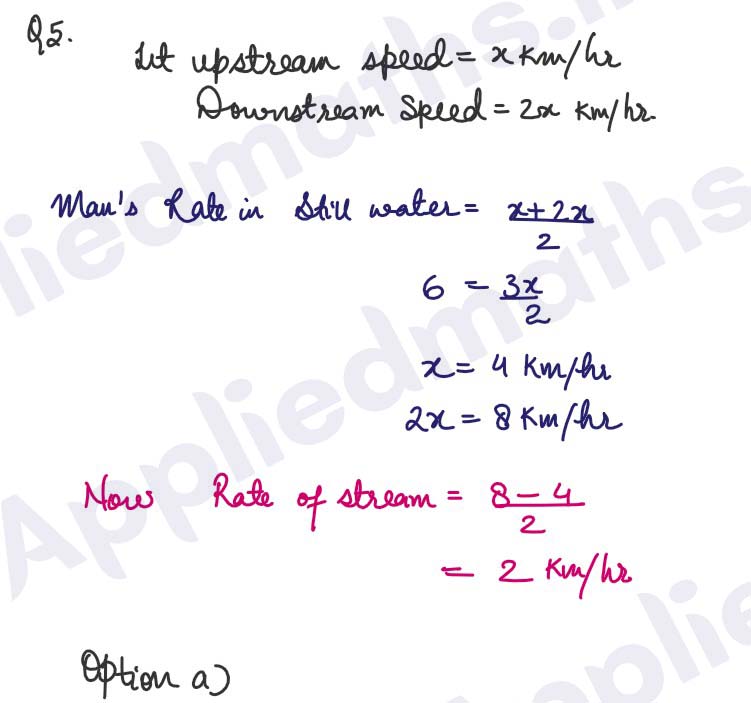 Q5.
Let upstream speed = x Km/hr
Downstream Speed = 2x Km/hr.
Man's Rate in Still water = x+2x/2
6 = 3x/2
x = 4 Km/hr
2x = 8 Km/hr
Now Rate of stream = 8-4/2
= 2 Km/hr
Option a)
Appliedmaths.
Appliedmaths
Applie